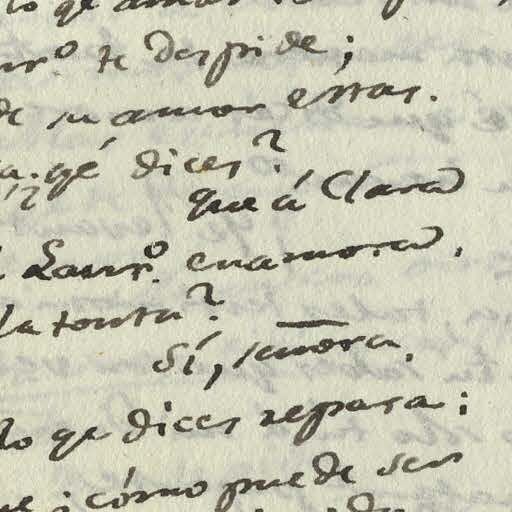 lo qe amor
te despide;
de su amor éstas.
qé dices?
que á Clara
Laurº. enamora.
la tonta?
Sí, señora.
lo qe dices repara;
¿cómo puede ser